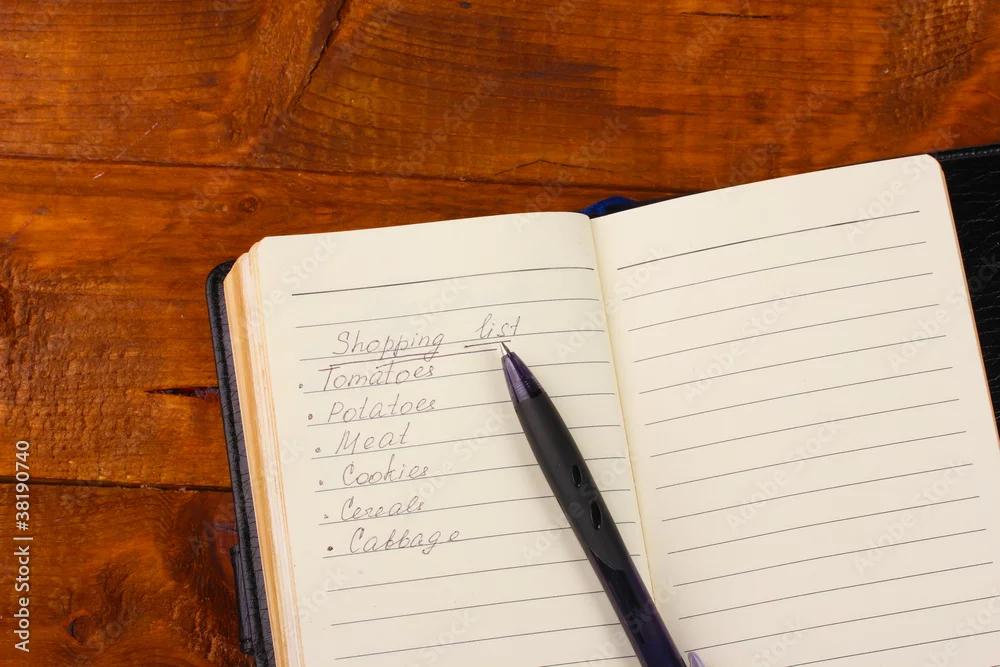 Shopping list
• Tomatoes
• Potatoes
• Meat
• Cookies
• Cereals
• Cabbage
Adobe Stock | #38190740